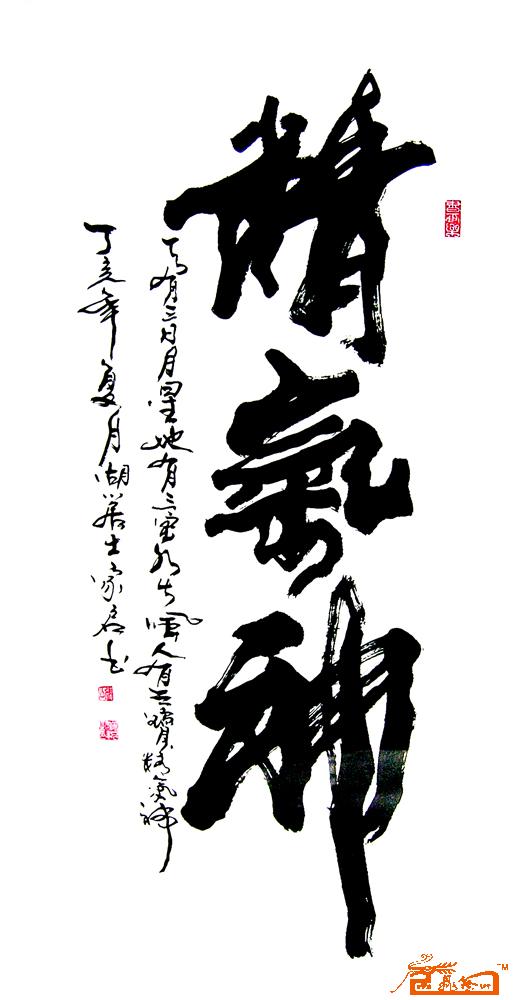 精氣神
天有三日月星地有三宝水火風人有三寶精氣神
丁亥年夏月湖居士家名书